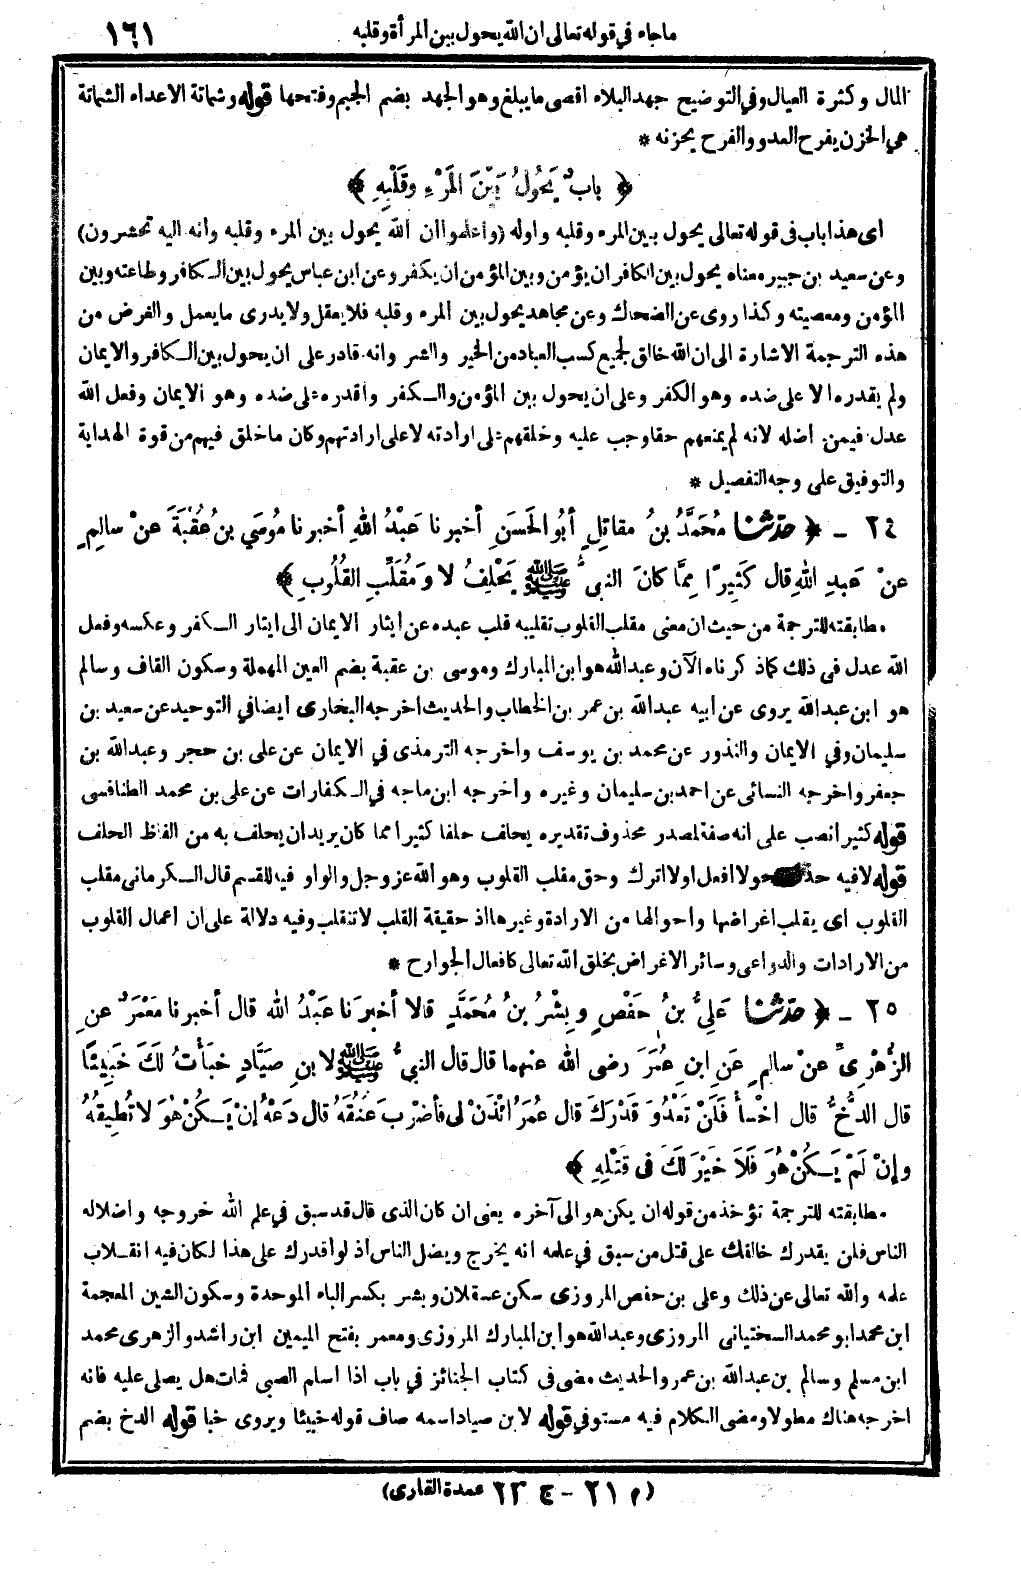 ماجاء في قوله تعالى ان الله يحول بين المرأة وقلبه ١٦١
المال وكثرة العيال وفي التوضيح جهد البلاء اقصى ما يبلغ وهو الجهد بضم الجيم وفتحها قوله وشماتة الاعداء الشماتة
هي الحزن يفرح العدو والفرح بحزنه *
﴿ بابٌ يَحُولُ بَيْنَ المَرْءِ وقَلْبِهِ ﴾
اى هذا باب فى قوله تعالى يحول بين المرء وقلبه واوله (واعلموا أن الله يحول بين المرء وقلبه وأنه اليه تحشرون)
وعن سعيد بن جبير معناه يحول بين الكافر ان يؤمن وبين المؤمن ان يكفر وعن ابن عباس يحول بين الكافر وطاعته وبين
المؤمن ومعصيته وكذا روى عن الضحاك وعن مجاهد يحول بين المرء وقلبه فلا يعقل ولا يدرى ما يعمل والغرض من
هذه الترجمة الاشارة الى ان الله خالق لجميع كسب العباد من الخير والشر وانه قادر على ان يحول بين الكافر والايمان
ولم يقدره الا على ضده وهو الكفر وعلى ان يحول بين المؤمن والكفر واقدره على ضده وهو الايمان وفعل الله
عدل فيمن اضله لانه لم يمنعهم حقا وجب عليه وخلقهم على ارادته لا على ارادتهم وكان ما خلق فيهم من قوة الهداية
والتوفيق على وجه التفصيل *
٢٤ - ﴿ حدثنا مُحَمَّدُ بنُ مقاتِلٍ أبُو الحَسَنِ أخبرنا عَبْدُ اللهِ أخبرنا مُوسَي بنُ عُقْبَةَ عنْ سالِمٍ
عنْ عَبدِ اللهِ قال كَثِيرًا مِمَّا كانَ النبيُّ ﷺ يَحْلِفُ لا ومُقَلِّبِ القُلُوبِ ﴾
مطابقته للترجمة من حيث ان معنى مقلب القلوب تقليبه قلب عبده عن ايثار الايمان الى ايثار الكفر وعكسه وفعل
الله عدل فى ذلك كما ذكرناه الآن وعبد الله هو ابن المبارك وموسى بن عقبة بضم العين المهملة وسكون القاف وسالم
هو ابن عبدالله يروى عن أبيه عبدالله بن عمر بن الخطاب والحديث اخرجه البخارى ايضا في التوحيد عن سعيد بن
سليمان وفي الايمان والنذور عن محمد بن يوسف واخرجه الترمذى في الايمان عن على بن حجر وعبدالله بن
جعفر واخرجه النسائى عن احمد بن سليمان وغيره واخرجه ابن ماجه في الكفارات عن على بن محمد الطنافسى
قوله كثيرا نصب على انه صفة لمصدر محذوف تقديره يحلف حلفا كثيرا مما كان يريد ان يحلف به من الفاظ الحلف
قوله لا فيه حذف نحو لا افعل او لا اترك وحق مقلب القلوب وهو الله عز وجل والواو فيه للقسم قال الكرمانى مقلب
القلوب اى يقلب اغراضها واحوالها من الارادة وغيرها اذ حقيقة القلب لا تنقلب وفيه دلالة على ان اعمال القلوب
من الارادات والدواعى وسائر الاغراض بخلق الله تعالى كافعال الجوارح *
٢٥ - ﴿ حدثنا عَلِيُّ بنُ حَفْصٍ وبِشْرُ بنُ مُحَمَّدٍ قالا أخبرَنا عَبْدُ الله قال أخبرنا مَعْمَرٌ عنِ
الزُّهْرِىِّ عنْ سالِمٍ عَنِ ابنِ عُمَرَ رضى الله عنهما قال قال النبيُّ ﷺ لابنِ صَيَّادٍ خبَأتُ لَكَ خَبِيئًا
قال الدُّخُّ قال اخْسأْ فَلَنْ تَعْدُوَ قَدْرَكَ قال عُمَرُ ائْذَنْ لى فأضْرِبَ عُنُقَهُ قال دَعْهُ إنْ يَكُنْ هُوَ لا تُطِيقُهُ
وإنْ لَمْ يَكُنْ هُوَ فَلاَ خَيْرَ لَكَ فى قَتْلِهِ ﴾
مطابقته للترجمة تؤخذ من قوله ان يكن هو الى آخره يعنى ان كان الذى قال قد سبق في علم الله خروجه واضلاله
الناس فلن يقدرك خالقك على قتل من سبق في علمه انه يخرج ويضل الناس اذ لو اقدرك على هذا لكان فيه انقلاب
علمه والله تعالى عن ذلك وعلى بن حفص المروزى سكن عسقلان وبشر بكسر الباء الموحدة وسكون الشين المعجمة
ابن محمد ابو محمد السختيانى المروزى وعبدالله هو ابن المبارك المروزى ومعمر بفتح الميمين ابن راشد والزهرى محمد
ابن مسلم وسالم بن عبدالله بن عمر والحديث مضى فى كتاب الجنائز في باب اذا اسلم الصبى فمات هل يصلى عليه فانه
اخرجه هناك مطولا ومضى الكلام فيه مستوفي قوله لابن صياد اسمه صاف قوله خبيئا ويروى خبا قوله الدخ بضم
(م ٢١ - ج ٢٣ عمدة القارى)